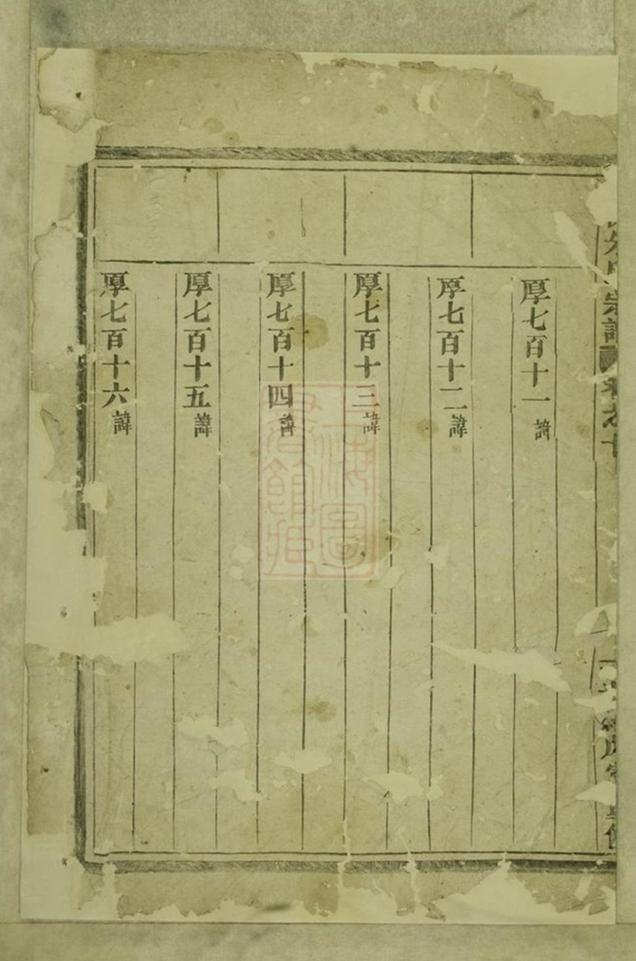 宗譜
卷之十
厚七百十一諱
厚七百十二諱
厚七百十三諱
厚七百十四諱
厚七百十五諱
厚七百十六諱
上海圖書館藏